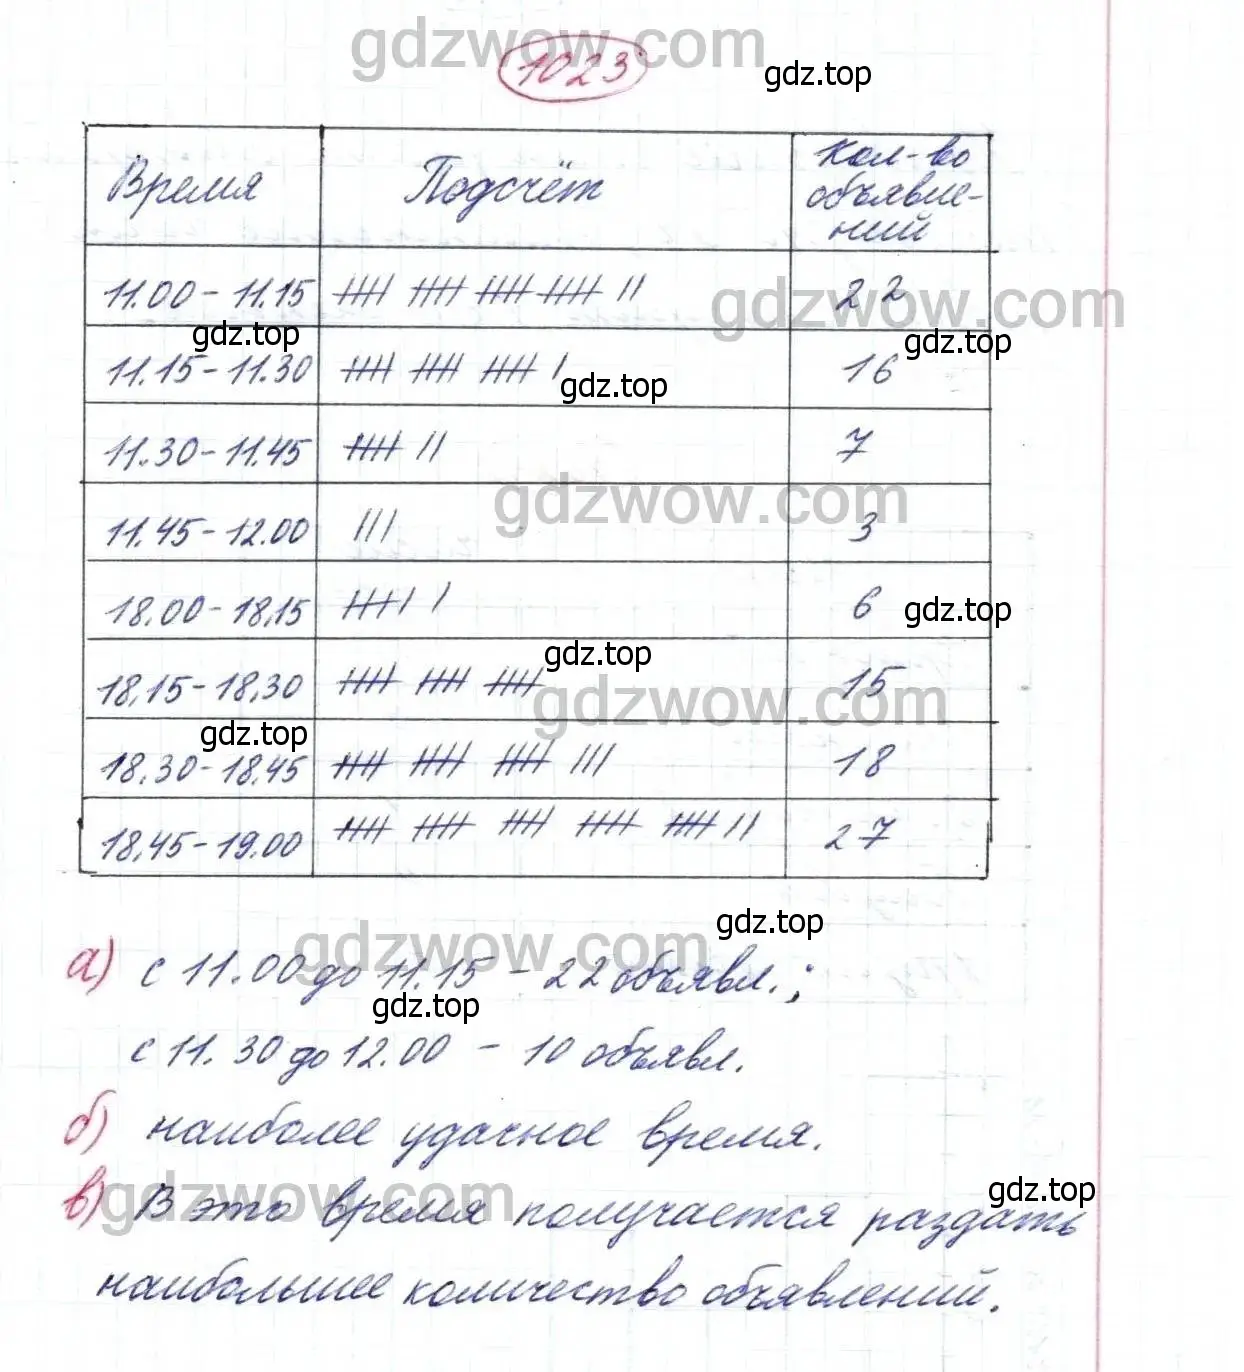 gdzwow.com
1023
gdz.top
Время Подсчёт Кол-во
объявле-
ний
11.00 - 11.15 22
gdzwow.com
gdz.top gdz.top
11.15 - 11.30 16
gdz.top
11.30 - 11.45 7
gdzwow.com
11.45 - 12.00 3
18.00 - 18,15 6
gdz.top
gdz.top
18,15 - 18,30 15
gdzwow.com
gdz.top
18.30 - 18.45 18
18,45 - 19.00 27
gdz.top
gdzwow.com
а) с 11.00 до 11.15 - 22 объявл.;
gdz.top
с 11.30 до 12.00 - 10 объявл.
б) наиболее удачное время.
gdzwow.com
gdz.top
в) В это время получается раздать
наибольшее количество объявлений.